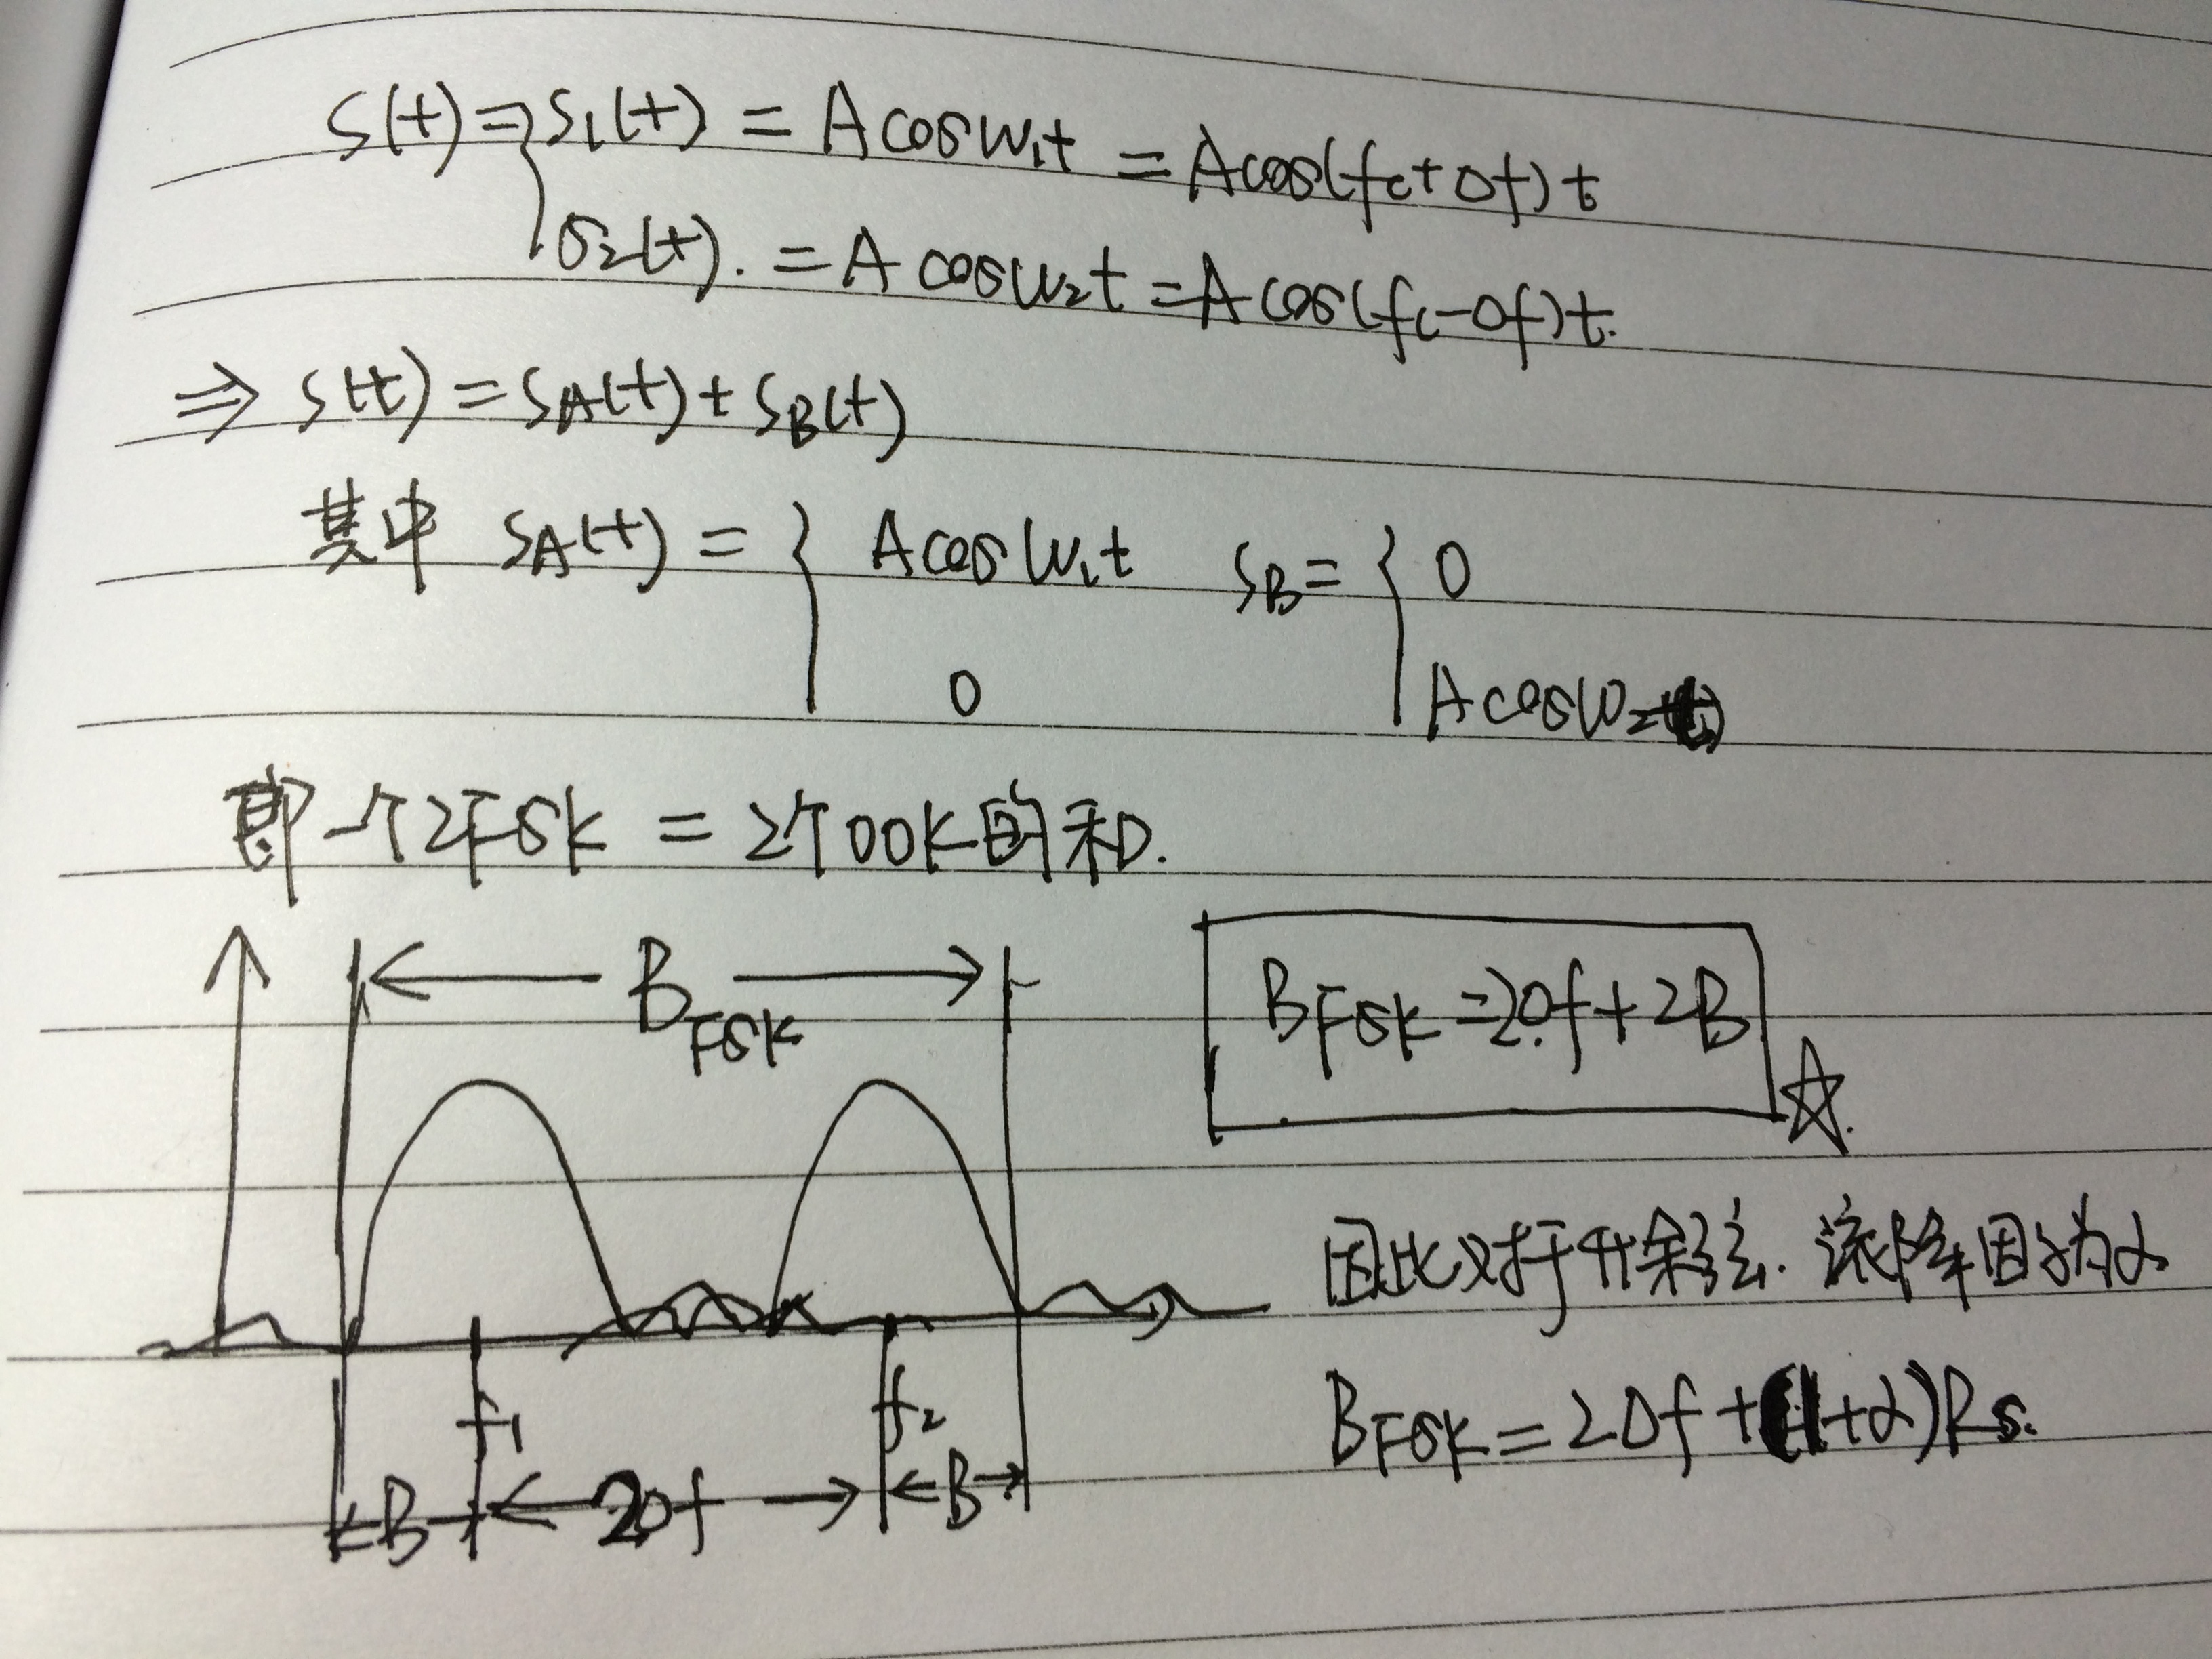 S(t) = { S₁(t) = Acosω₁t = Acos(fc+Δf)t
S₂(t). = Acosω₂t = Acos(fc-Δf)t.
⇒ S(t) = SA(t) + SB(t)
其中 SA(t) = { Acosω₁t SB = { 0
0 Acosω₂t
即一个2FSK = 2个OOK的和.
B_FSK
B_FSK = 2Δf + 2B ☆.
因此对于升余弦. 滚降因子为α
f₁ f₂
B_FSK = 2Δf + (1+α)Rs.
B 2Δf B